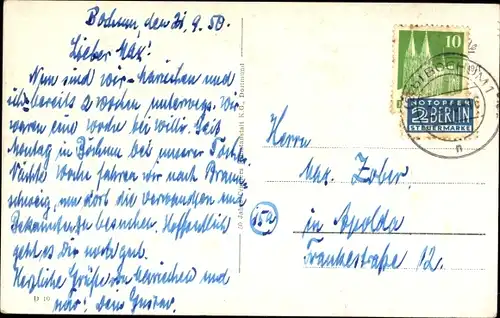 Bochum, den 21.9.50.
Lieber Max!
Nun sind wir Mariechen und
ich bereits 2 Wochen unterwegs. Wir
waren eine Woche bei Willi. Seit
Montag in Bochum bei unserer Tochter.
Nächste Woche fahren wir nach Braun-
schweig, um dort die Verwandten und
Bekannten zu besuchen. Hoffentlich
geht es Dir noch gut.
Herzliche Grüße von Mariechen und
mir: Dein Gustav.
D 10
10
NOTOPFER
2 BERLIN
STEUERMARKE
BOCHUM 1
Herrn
Max Zober,
15a
in Apolda
Frankestraße 12.